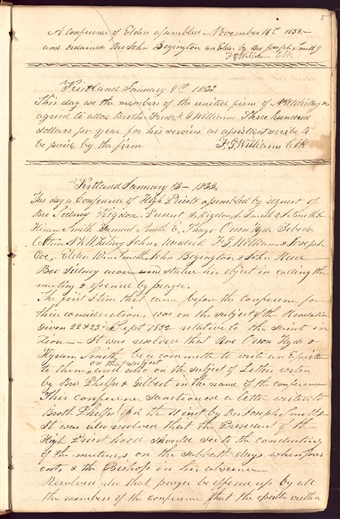 5
A Conference of Elders assembled November 16th 1832
and ordained Bro John Boyington an Elder by Bro Joseph Smith Jr
F G Williams Clk
Kirtland January 9th 1833
This day we the members of the united firm of N K Whitney
agreed to allow Brother Frederick G Williams Three hundred
dollars per year for his services as assistant scribe to
be paid by the firm F. G. Williams Clk
Kirtland January 13 - 1833.
This day a Conference of High Priests assembled by request of
Bro Sidney Rigdon. Present S Rigdon, J Smith
Hiram Smith Samuel Smith E, Thayr Orson Hyde Zebedee
Coltrin N K Whitney John Murdock F G Williams & Joseph
Coe, Elder Wm Smith, John Boyington & John Rich
Bro Sidney stated his object in calling the
meeting & opened by prayer.
The first Item that came before the conference for
their considerations was on the subject of the Revelation
given 22 & 23 Sept 1832 relative to the Saints in
Zion - It was resolved that Bro Orson Hyde &
Hyrum Smith be a committe to write an Epistle
on that subject
to them and also on the subject of Letters written
by Bro Phelps & Gilbert in the name of the conference
This conference sanctioned a letter written to
Broth Phelps by Bro Joseph Smith Jr
It was also resolved that the President of the
High Priesthood should see to the conducting
of the meetings on the sabbath days when pres
ent, & the Bishop in his absence
Resolved also that prayer be offered up by all
the members of the conference that the epistle written